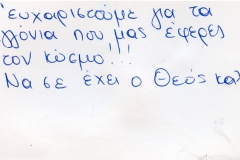 Ευχαριστούμε για τα
χλόνια που μας έφερες
τον κόσμο!!!
Να σε έχει ο Θεός καλ